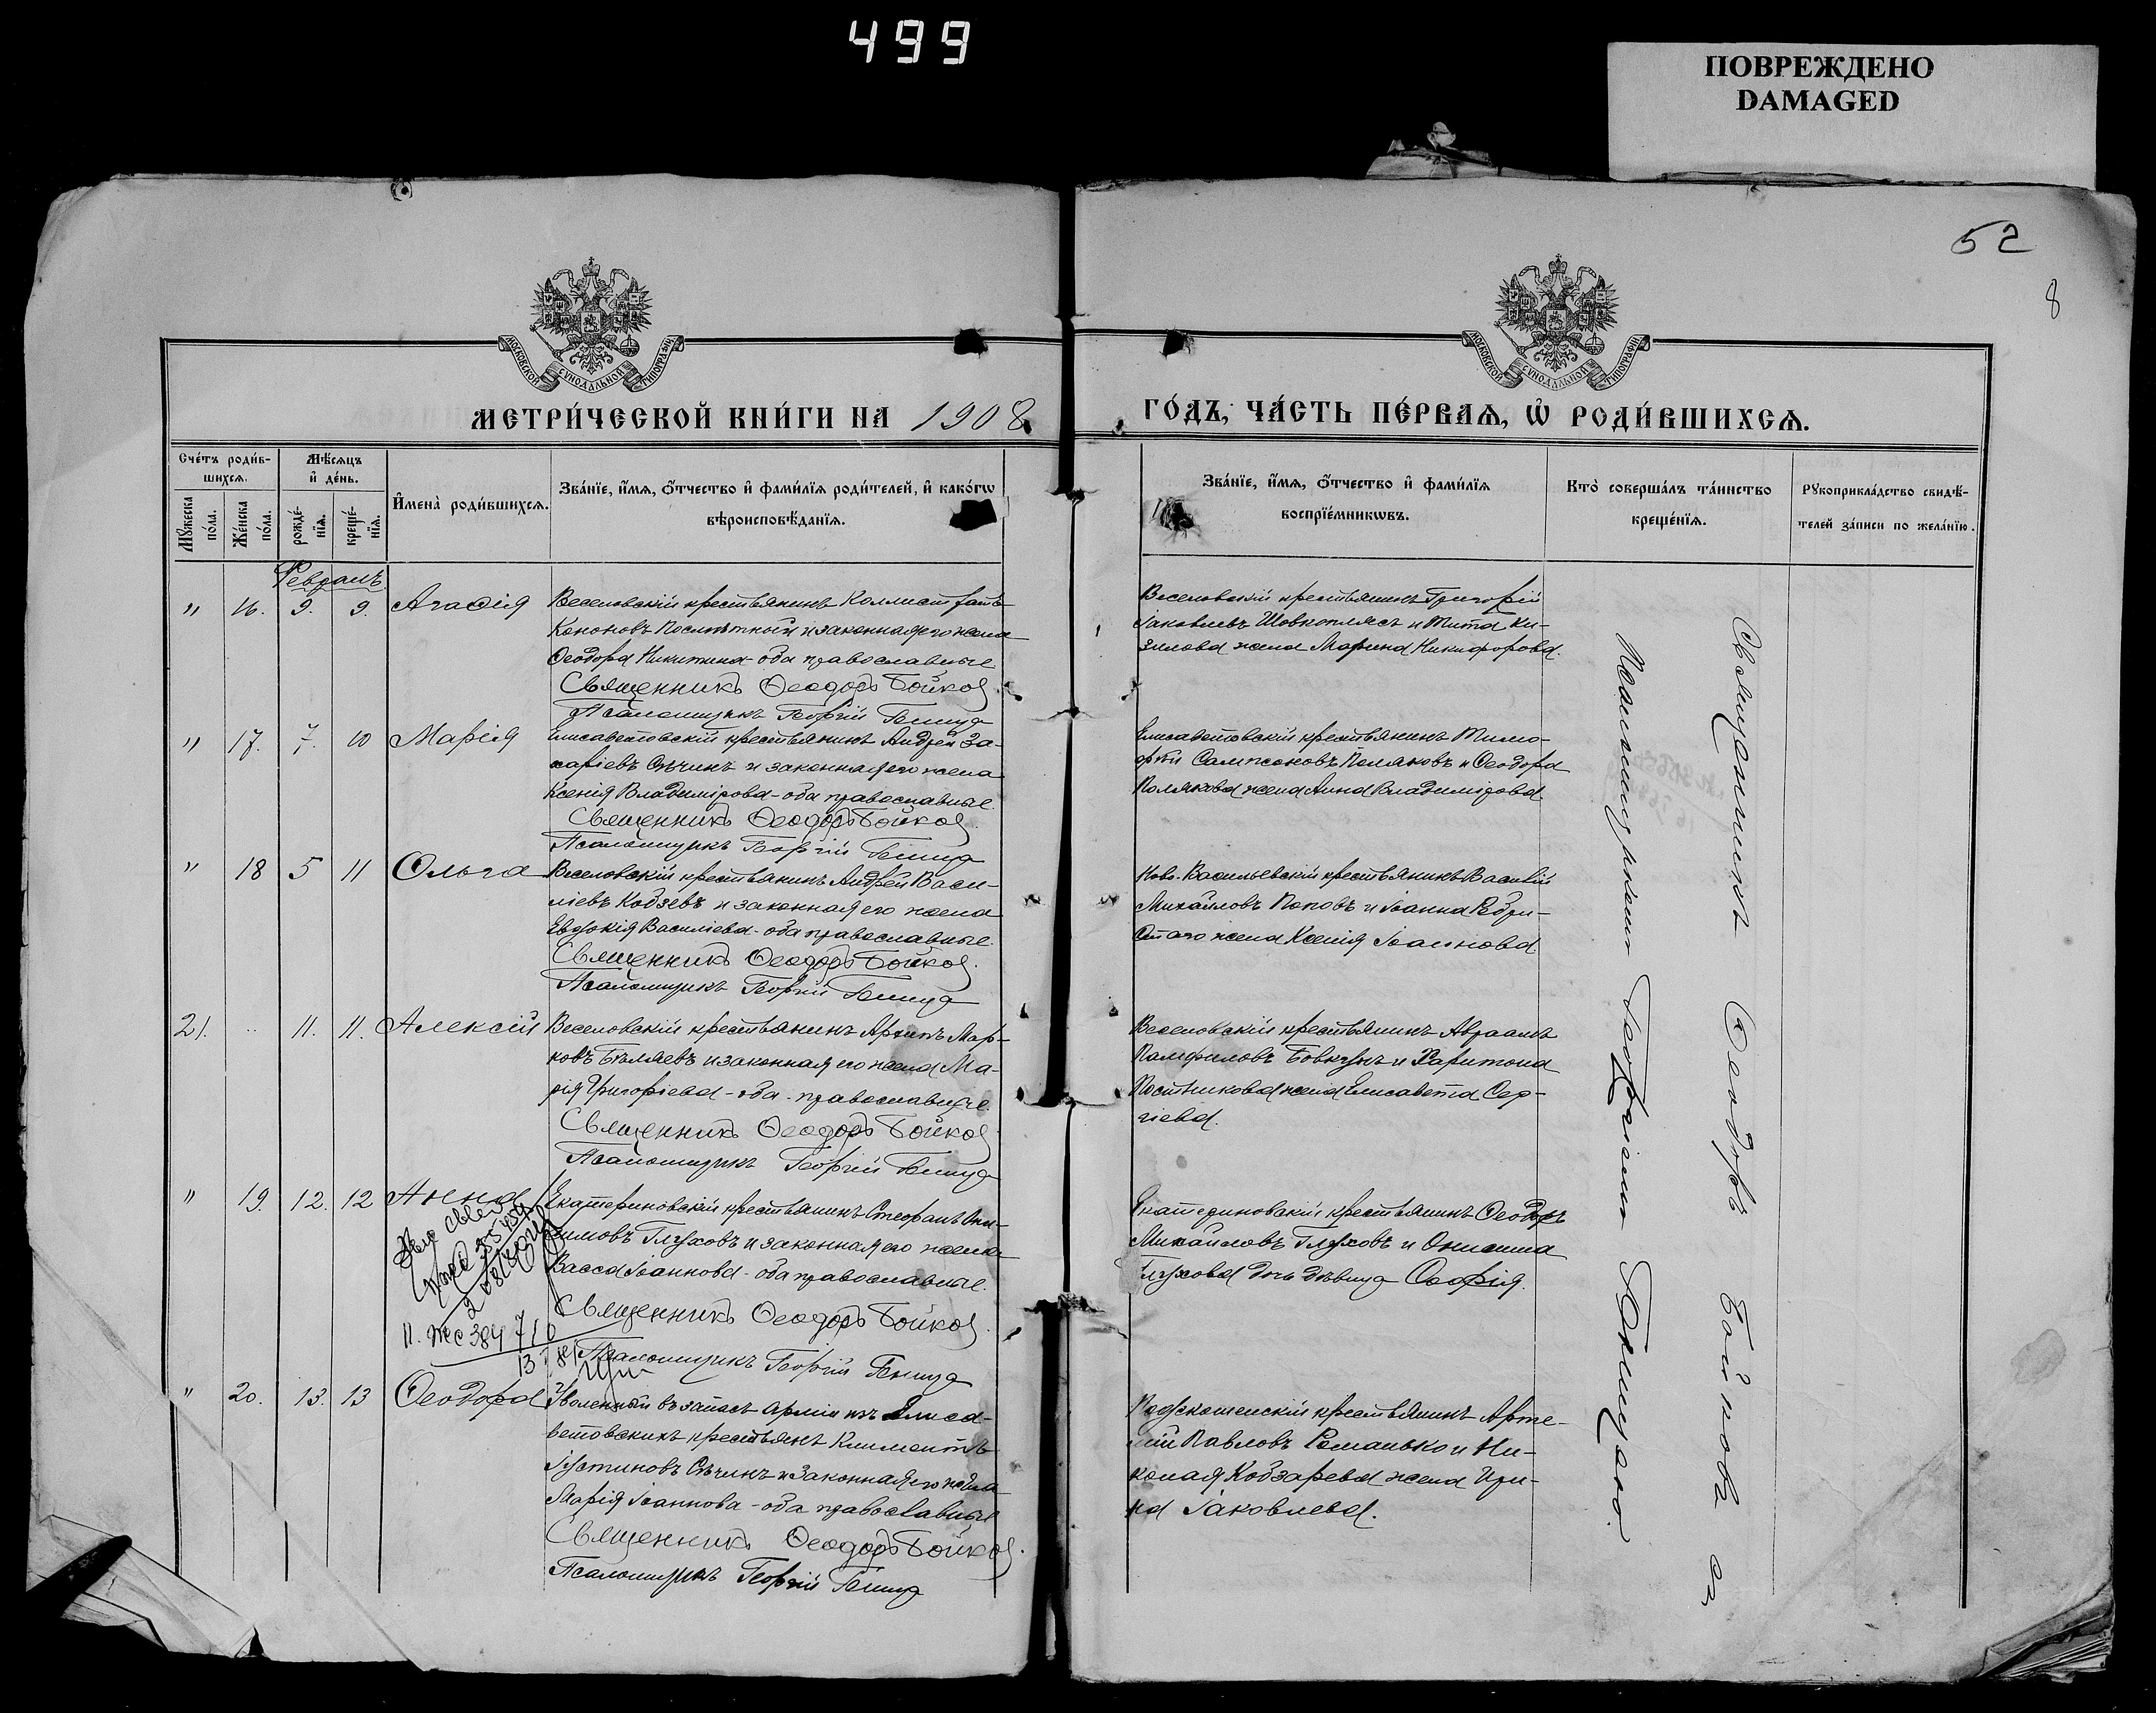 499
ПОВРЕЖДЕНО
DAMAGED
52
8
МОСКОВСКОЙ СѴНОДАЛЬНОЙ ТИПОГРАФІИ
МОСКОВСКОЙ СѴНОДАЛЬНОЙ ТИПОГРАФІИ
МЕТРИ́ЧЕСКОЙ КНИ́ГИ НА 1908
ГО́ДЪ, ЧА́СТЬ ПЕ́РВАѦ, Ѡ҆ РОДИ́ВШИХСѦ.
Сче́тъ роди́в-
шихсѧ.
Мꙋ́жеска по́ла.
Же́нска по́ла.
Мѣ́сѧцъ
и҆ де́нь.
рожде́-
нїѧ.
креще́-
нїѧ.
И҆мена̀ роди́вшихсѧ.
Зва́нїе, и҆́мѧ, ѻ҆́тчество и҆ фами́лїѧ роди́телей, и҆ како́гѡ
вѣроисповѣ́данїѧ.
Зва́нїе, и҆́мѧ, ѻ҆́тчество и҆ фами́лїѧ
воспрїе́мникѡвъ.
Кто̀ соверша́лъ та́инство
креще́нїѧ.
Рꙋкоприкла́дство свидѣ́-
телей за́писи по жела́нїю.
Февраль
" 16. 9. 9. Агафія
Веселовскій крестьянинъ Каллистратъ
Кононовъ и законная его жена
Ѳеодора Никитина - оба православные
Священникъ Ѳеодоръ Бойковъ
Псаломщикъ Георгій
Веселовскій крестьянинъ Григорій
Іаковлевъ Шовкоплясъ и Тита Ки-
зилова жена Марина Никифорова.
" 17. 7. 10 Марія
Елисаветовскій крестьянинъ Андрей За-
харіевъ Сѣчинъ и законная его жена
Ксенія Владимірова - оба православные.
Священникъ Ѳеодоръ Бойковъ.
Псаломщикъ Георгій
Елисаветовскій крестьянинъ Тимо-
фей Сампсоновъ Поляковъ и Ѳеодора
Полякова жена Анна Владимірова
" 18 5 11 Ольга
Веселовскій крестьянинъ Андрей Васи-
ліевъ Кобзевъ и законная его жена
Евдокія Василіева - оба православные.
Священникъ Ѳеодоръ Бойковъ.
Псаломщикъ Георгій
Ново-Васильевскій крестьянинъ Василій
Михайловъ Поповъ и Іоанна
жена Ксенія Іоаннова.
21. " 11. 11. Алексій
Веселовскій крестьянинъ Архипъ Мар-
ковъ Бѣляевъ и законная его жена Ма-
рія Григоріева - оба - православные.
Священникъ Ѳеодоръ Бойковъ
Псаломщикъ Георгій
Веселовскій крестьянинъ Авраамъ
Памфиловъ Бовкунъ и Харитона
Постникова жена Елисавета Сер-
гіева.
" 19. 12. 12 Анна
Екатериновскій крестьянинъ Стефанъ Они-
симовъ Глуховъ и законная его жена
Васса Іоаннова - оба православные.
Священникъ Ѳеодоръ Бойковъ.
Псаломщикъ Георгій
Екатериновскій крестьянинъ Ѳеодоръ
Михайловъ Глуховъ и Онисима
Глухова дочь дѣвица Софія.
" 20. 13. 13 Ѳеодора
Уволенный въ запасъ арміи изъ Елиса-
ветовскихъ крестьянъ Климентъ
Іустиновъ Сѣчинъ и законная его жена
Марія Іоаннова - оба православные
Священникъ Ѳеодоръ Бойковъ.
Псаломщикъ Георгій
крестьянинъ Арте-
мій Павловъ Романько и Ни-
колая Кобзарева жена Ири-
на Іаковлева.
Священникъ Ѳеодоръ Бойковъ съ
Псаломщикомъ Георгіемъ